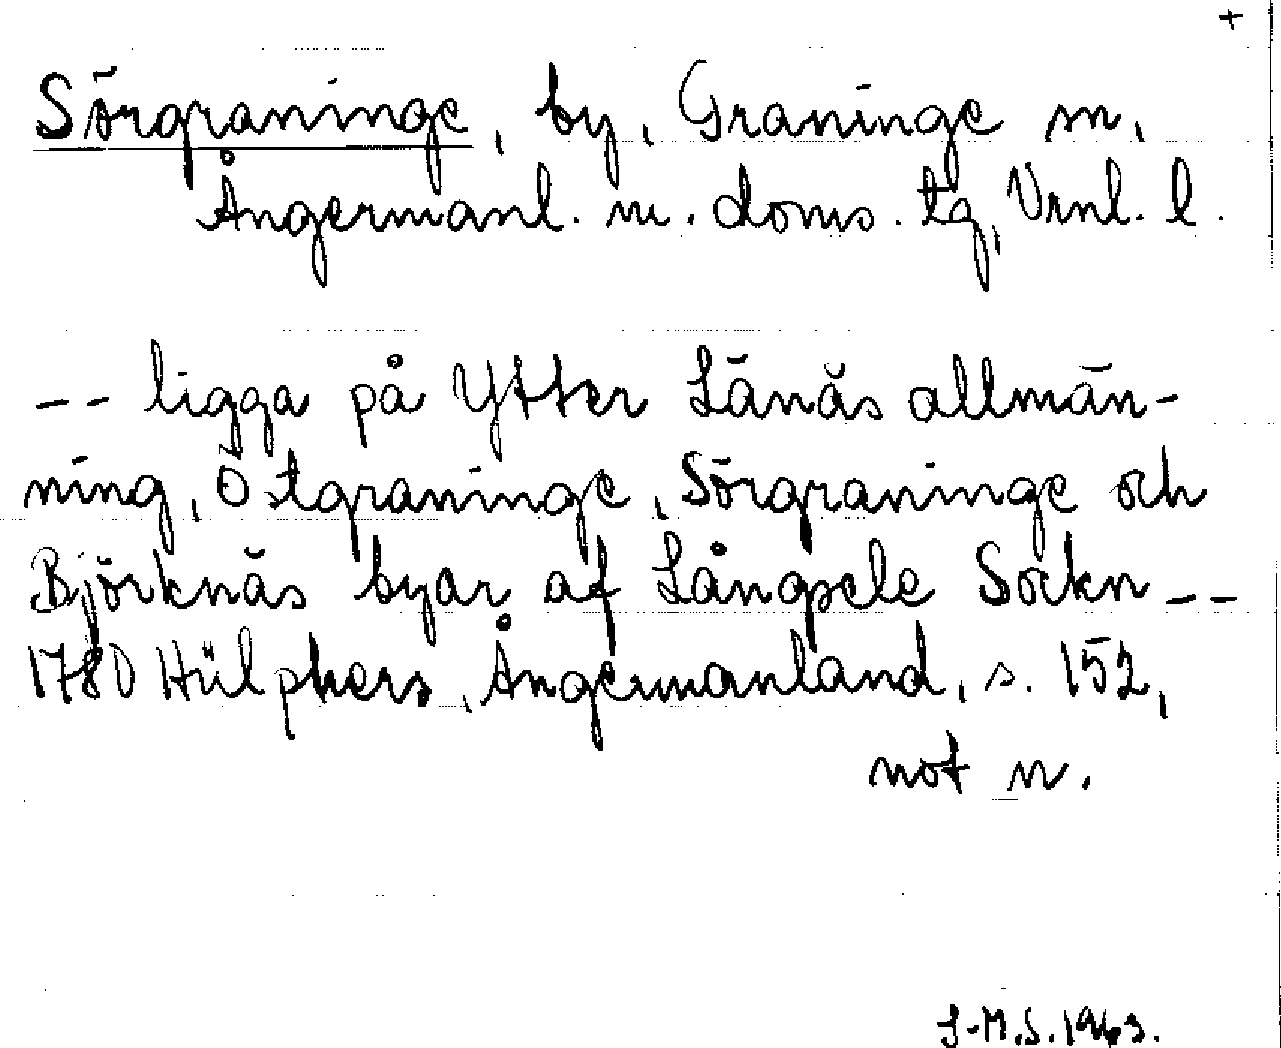 +
Sörgraninge, by, Graninge sn,
Ångermanl. m. doms. tg, Vrnl. l.
-- ligga på Ytter Lånäs allmän-
ning, Östgraninge, Sörgraninge och
Björknäs byar af Långsele Sockn --
1780 Hülphers, Ångermanland, s. 152,
not n.
J-M.S. 1963.